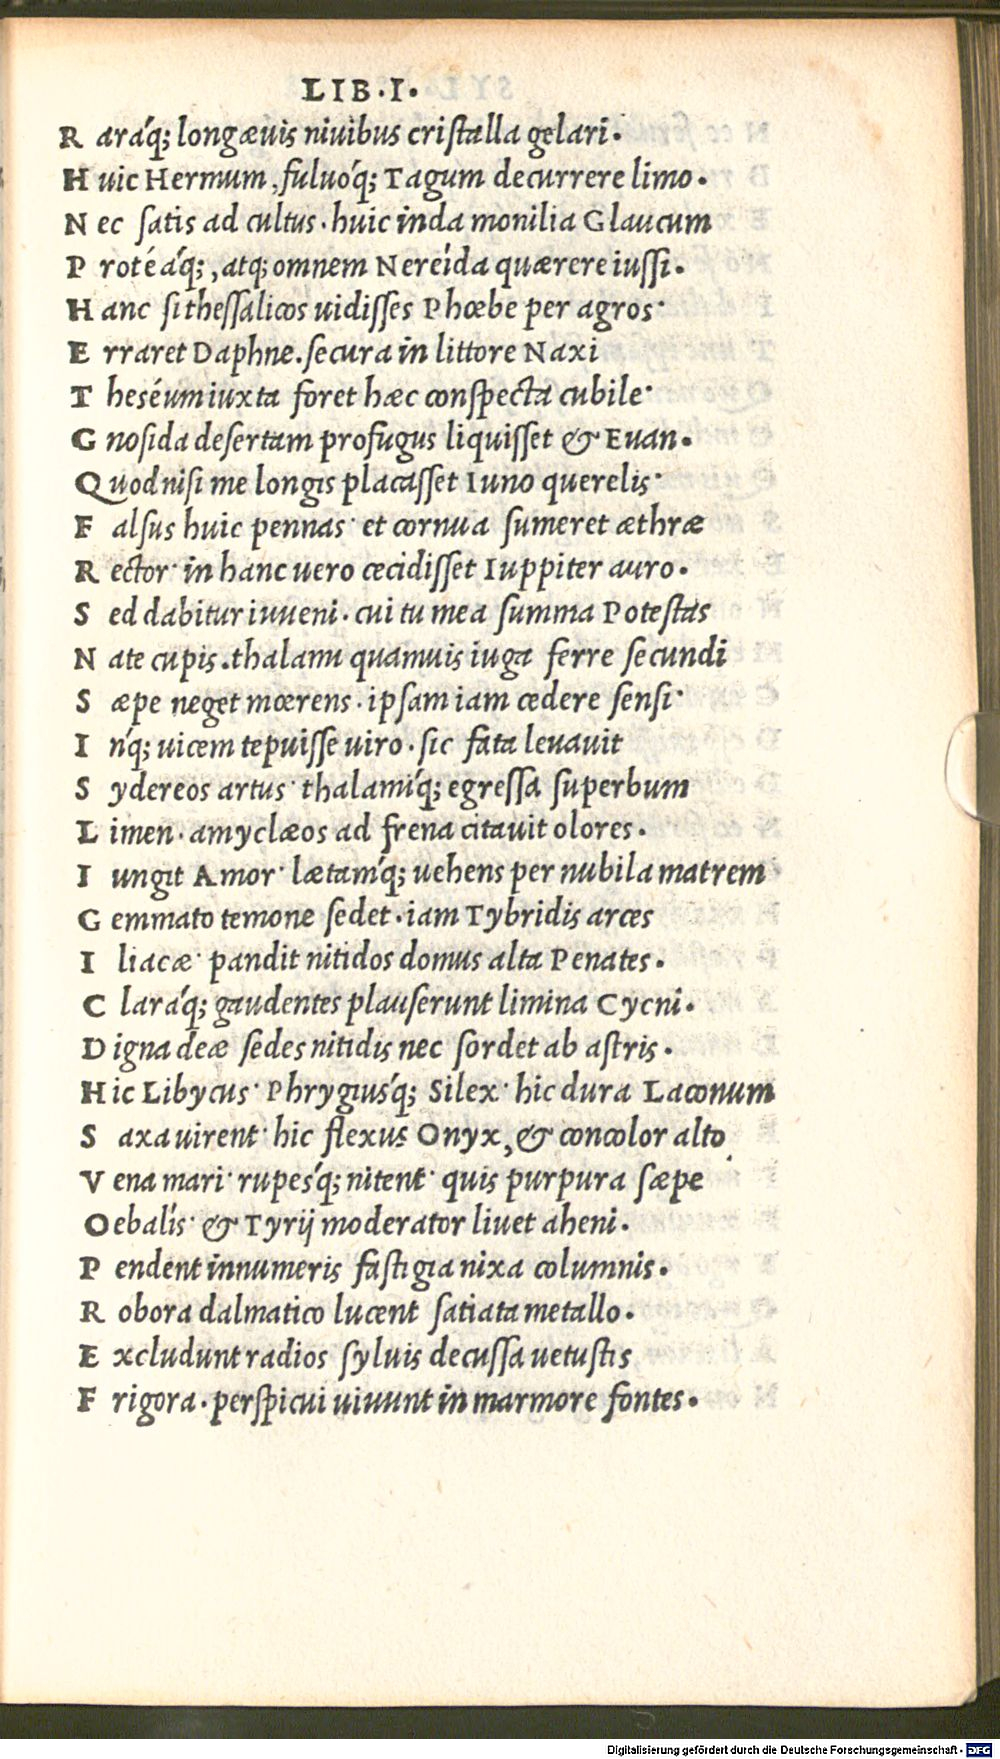 LIB.I.
R aráq; longæuis niuibus cristalla gelari.
H uic Hermum, fuluóq; Tagum decurrere limo.
N ec satis ad cultus. huic inda monilia Glaucum
P rotéáq;, atq; omnem Nereída quærere iussi.
H anc si thessalicos uidisses Phœbe per agros·
E rraret Daphne. secura in littore Naxi
T heséum iuxta foret hæc conspecta cubile·
G nosida desertam profugus liquisset & Euan.
Q uod nisi me longis placasset Iuno querelis·
F alsus huic pennas· et cornua sumeret æthræ
R ector· in hanc uero cecidisset Iuppiter auro.
S ed dabitur iuueni. cui tu mea summa Potestas
N ate cupis. thalami quamuis iuga ferre secundi
S æpe neget mœrens. ipsam iam cedere sensi·
I nq́; uicem tepuisse uiro. sic fata leuauit
S ydereos artus· thalamiq́; egressa superbum
L imen. amyclæos ad frena citauit olores.
I ungit Amor· lætamq́; uehens per nubila matrem
G emmato temone sedet. iam Tybridis arces
I liacæ· pandit nitidos domus alta Penates.
C laráq; gaudentes plauserunt limina Cycni.
D igna deæ sedes nitidis nec sordet ab astris.
H ic Libycus· Phrygiusq́; Silex· hic dura Laconum
S axa uirent· hic flexus Onyx, & concolor alto
V ena mari· rupesq́; nitent· quis purpura sæpe
O ebalis· & Tyrij moderator liuet aheni.
P endent innumeris fastigia nixa columnis.
R obora dalmatico lucent satiata metallo.
E xcludunt radios syluis decussa uetustis
F rigora. perspicui uiuunt in marmore fontes.
Digitalisierung gefördert durch die Deutsche Forschungsgemeinschaft - DFG